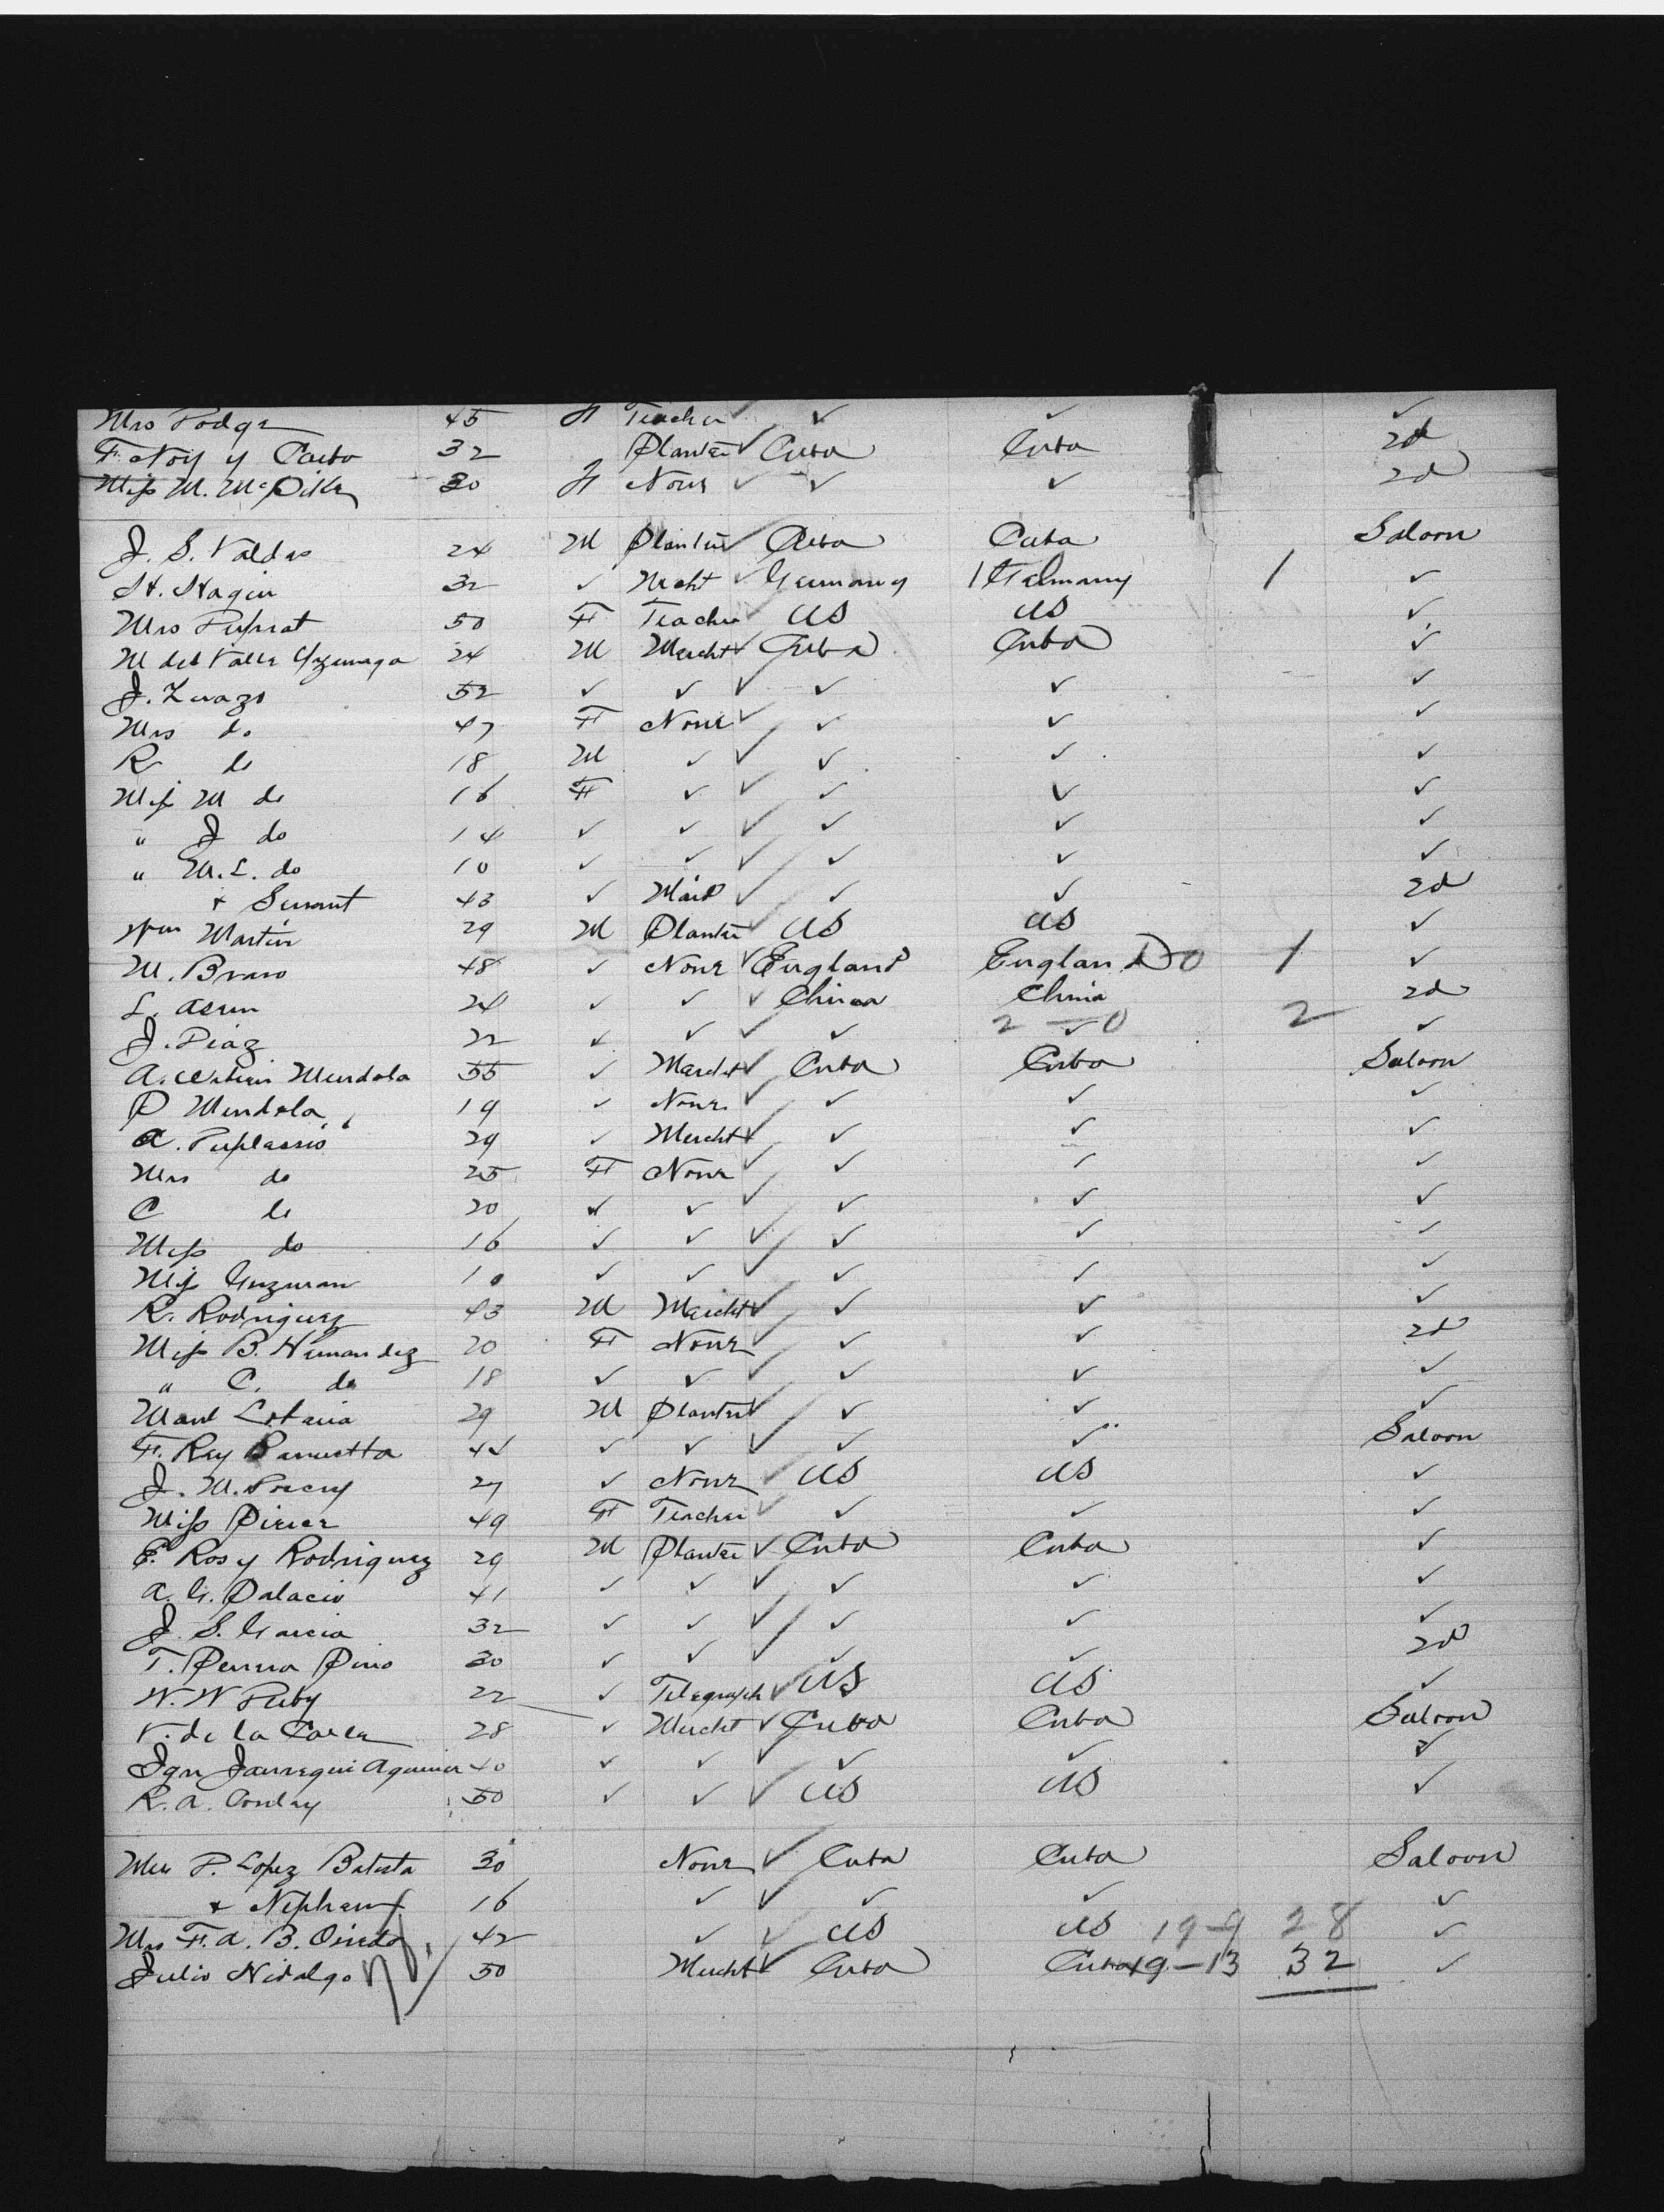 Mrs Podgr 45 F Teacher ✓ ✓ ✓ ✓
F. Noy y Carbo 32 Planter ✓ Cuba Cuba 2d
Miss M. McPike 30 F None ✓ ✓ ✓ 2d
J. S. Valdes 24 M Planter ✓ Cuba Cuba Saloon
H. Hagin 32 ✓ Mcht ✓ Germany 1 Germany 1 ✓
Mrs 50 F Teacher US US ✓
M del Valle Yzznaga 24 M Mercht ✓ Cuba Cuba ✓
J. Zuazo 52 ✓ ✓ ✓ ✓ ✓ ✓
Mrs do 47 F None ✓ ✓ ✓ ✓
R do 18 M ✓ ✓ ✓ ✓ ✓
Miss M do 16 F ✓ ✓ ✓ ✓ ✓
" J do 14 ✓ ✓ ✓ ✓ ✓ ✓
" M. L. do 10 ✓ ✓ ✓ ✓ ✓ ✓
+ Servant 43 ✓ Maid ✓ ✓ ✓ 2d
Wm Martin 29 M Planter ✓ US US ✓
M. Bravo 48 ✓ None ✓ England England 0 1 ✓
L. Asem 24 ✓ ✓ ✓ China China 2d
J. Diaz 22 ✓ ✓ ✓ ✓ 2 – 0 ✓ 2 ✓
A. Mendola 55 ✓ Mercht ✓ Cuba Cuba Saloon
P Mendola 19 ✓ None ✓ ✓ ✓ ✓
A. 29 ✓ Mercht ✓ ✓ ✓ ✓
Mrs do 25 F None ✓ ✓ ✓ ✓
C do 20 ✓ ✓ ✓ ✓ ✓ ✓
Miss do 16 ✓ ✓ ✓ ✓ ✓ ✓
Miss Guzman 10 ✓ ✓ ✓ ✓ ✓ ✓
R. Rodriguez 43 M Mercht ✓ ✓ ✓ ✓
Miss B. Hernandez 20 F None ✓ ✓ ✓ 2d
" C. do 18 ✓ ✓ ✓ ✓ ✓ ✓
Manl 29 M Planter ✓ ✓ ✓ ✓
F. Rey 44 ✓ ✓ ✓ ✓ ✓ Saloon
J. M. 27 ✓ None ✓ US US ✓
Miss 49 F Teacher ✓ ✓ ✓ ✓
E. Ros y Rodriguez 29 M Planter ✓ Cuba Cuba ✓
A. G. Palacio 41 ✓ ✓ ✓ ✓ ✓ ✓
J. S. Garcia 32 ✓ ✓ ✓ ✓ ✓ ✓
T. Perera Pino 30 ✓ ✓ ✓ ✓ ✓ 2d
W. W 22 ✓ Telegraph ✓ US US ✓
V. de la 28 ✓ Mercht ✓ Cuba Cuba Saloon
Ign Jauregui 40 ✓ ✓ ✓ ✓ ✓ ✓
R. A. Conday 50 ✓ ✓ ✓ US US ✓
P. Lopez Batista 30 None ✓ Cuba Cuba Saloon
+ Nephew 16 ✓ ✓ ✓ ✓ ✓
Mrs F. A. B. Oviedo 42 ✓ ✓ US US 19–9 28 ✓
Julio Hidalgo 50 Mercht ✓ Cuba Cuba 19–13 32 ✓